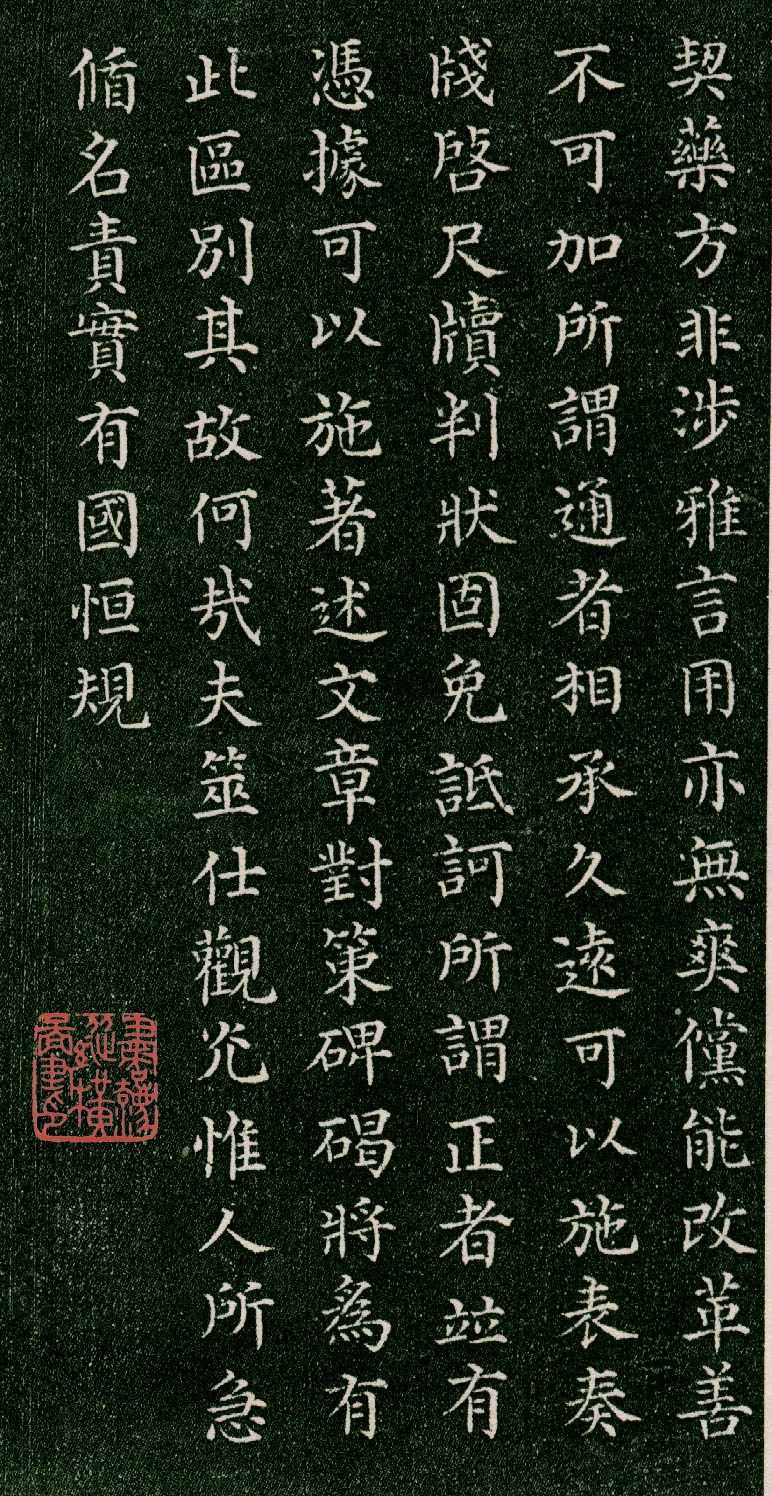 契藥方非涉雅言用亦無爽儻能改革善
不可加所謂通者相承久遠可以施表奏
牋啓尺牘判狀固免詆訶所謂正者並有
憑據可以施著述文章對策碑碣將爲有
此區別其故何哉夫筮仕觀光惟人所急
循名責實有國恒規